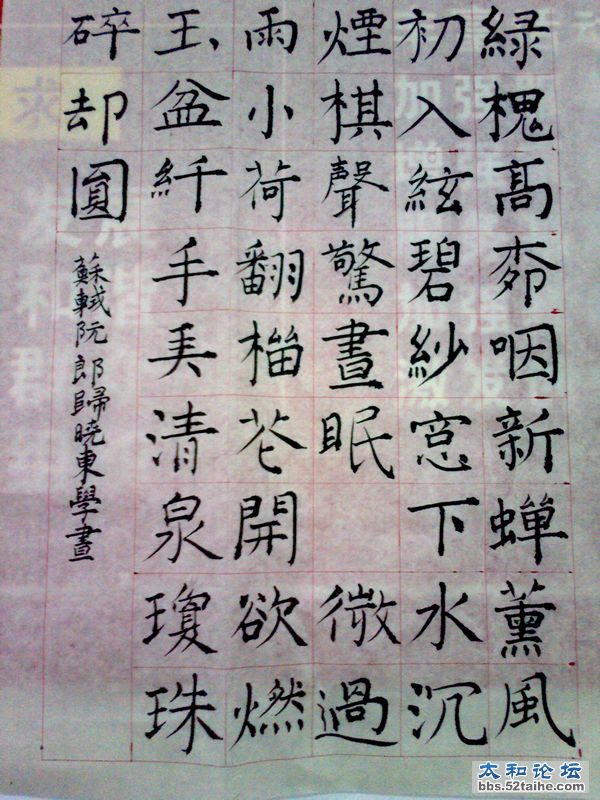 緑槐髙柳咽新蝉薰風
初入絃碧紗窓下水沉
煙棋聲驚晝眠 微過
雨小荷翻榴花開欲燃
玉盆纤手弄清泉瓊珠
碎却圓
蘇軾阮郎歸暁東學書
太和论坛
bbs.52taihe.com